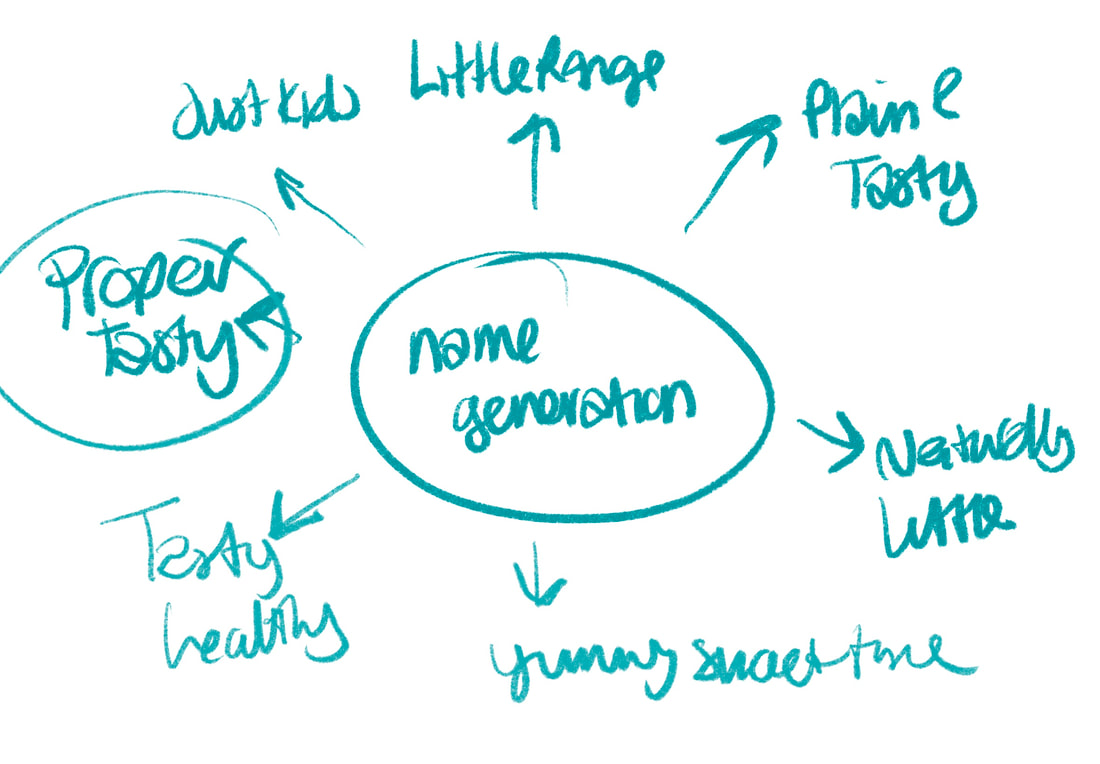 Little Range
Just Kids
Plain &
Tasty
Proper
tasty
name
generation
Naturally
Little
Tasty
healthy
yummy snack time